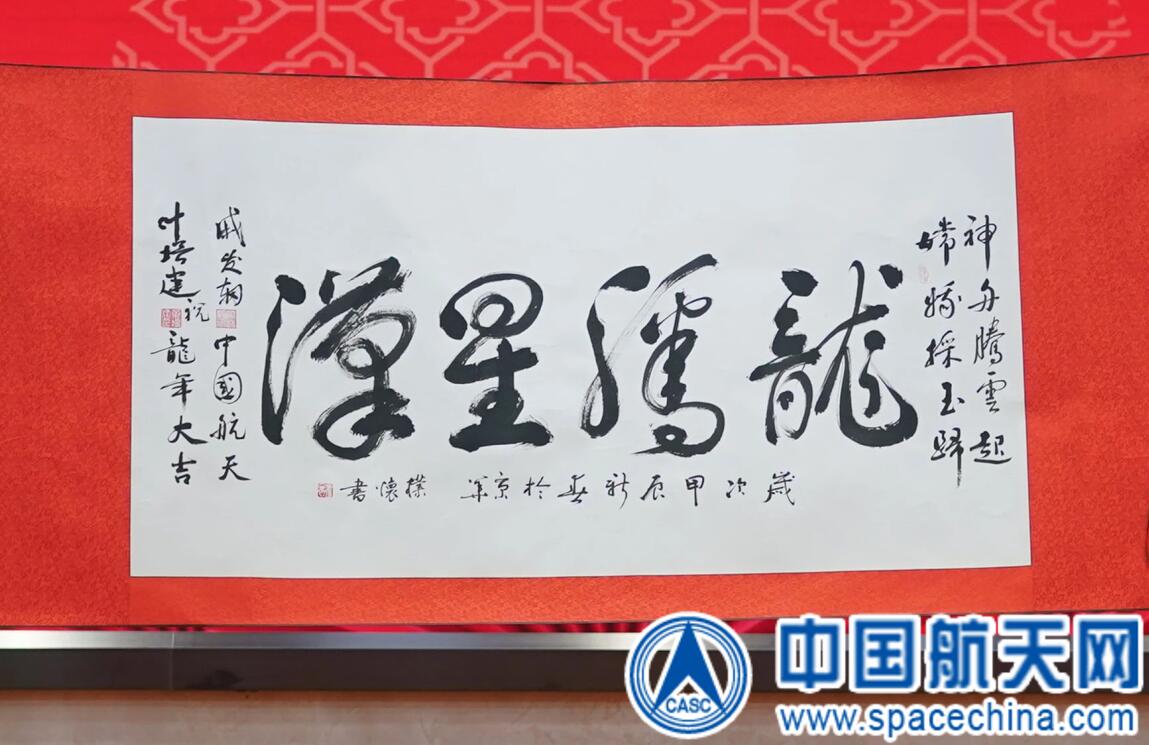 神舟騰雲起
嫦娥採玉歸
龍騰星漢
歲次甲辰新春於京華 樸懷書
戚发轫
叶培建
祝
中國航天
龍年大吉
CASC
中国航天网
www.spacechina.com